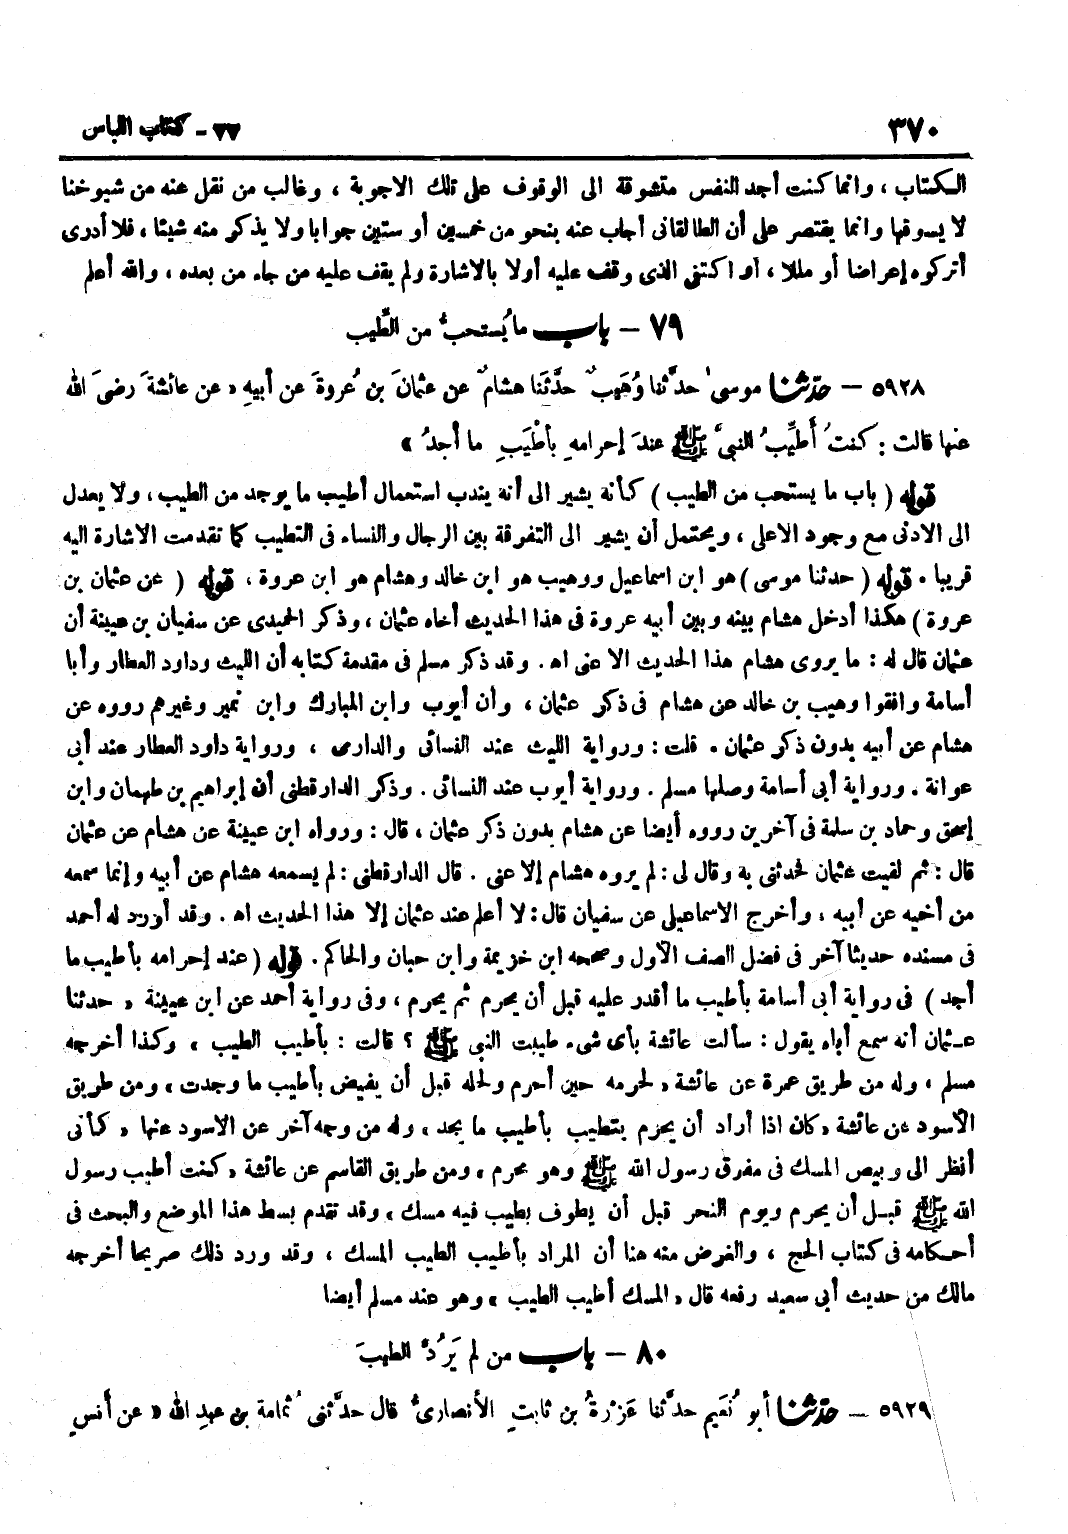 ٣٧٠
٧٧ - كتاب اللباس
الكتاب ، وانما كنت أجد النفس متشوقة الى الوقوف على تلك الاجوبة ، وغالب من نقل عنه من شيوخنا
لا يسوقها وانما يقتصر على أن الطالقانى أجاب عنه بنحو من خمسين أو ستين جوابا ولا يذكر منه شيئا ، فلا أدرى
أتركوه إعراضا أو مللا ، أو اكتفى الذى وقف عليه أولا بالاشارة ولم يقف عليه من جاء من بعده ، والله أعلم
٧٩ – باب ما يُستحبُّ من الطِّيب
٥٩٢٨ – حدّثنا موسى حدَّثنا وُهَيبٌ حدَّثَنا هشامٌ عن عثمانَ بن عُروةَ عن أبيهِ « عن عائشةَ رضىَ الله
عنها قالت : كنتُ أُطيِّبُ النبىَّ ﷺ عندَ إحرامهِ بأطْيَبِ ما أجدُ »
قوله ( باب ما يستحب من الطيب ) كأنه يشير الى أنه يندب استعمال أطيب ما يوجد من الطيب ، ولا يعدل
الى الادنى مع وجود الاعلى ، ويحتمل أن يشير الى التفرقة بين الرجال والنساء فى التطيب كما تقدمت الاشارة اليه
قريبا . قوله ( حدثنا موسى ) هو ابن اسماعيل ووهيب هو ابن خالد وهشام هو ابن عروة ، قوله ( عن عثمان بن
عروة ) هكذا أدخل هشام بينه وبين أبيه عروة فى هذا الحديث أخاه عثمان ، وذكر الحميدى عن سفيان بن عيينة أن
عثمان قال له : ما يروى هشام هذا الحديث الا عنى اه . وقد ذكر مسلم فى مقدمة كتابه أن الليث وداود العطار وأبا
أسامة وافقوا وهيب بن خالد عن هشام فى ذكر عثمان ، وأن أيوب وابن المبارك وابن نمير وغيرهم رووه عن
هشام عن أبيه بدون ذكر عثمان . قلت : ورواية الليث عند النسائى والدارمى ، ورواية داود العطار عند أبى
عوانة . ورواية أبى أسامة وصلها مسلم . ورواية أيوب عند النسائى . وذكر الدارقطنى أن إبراهيم بن طهمان وابن
إسحق وحماد بن سلمة فى آخرين رووه أيضا عن هشام بدون ذكر عثمان ، قال : ورواه ابن عيينة عن هشام عن عثمان
قال : ثم لقيت عثمان فحدثنى به وقال لى : لم يروه هشام إلا عنى . قال الدارقطنى : لم يسمعه هشام عن أبيه وإنما سمعه
من أخيه عن أبيه ، وأخرج الاسماعيلى عن سفيان قال : لا أعلم عند عثمان إلا هذا الحديث اه . وقد أورد له أحمد
فى مسنده حديثا آخر فى فضل الصف الأول وصححه ابن خزيمة وابن حبان والحاكم . قوله ( عند إحرامه بأطيب ما
أجد ) فى رواية أبى أسامة بأطيب ما أقدر عليه قبل أن يحرم ثم يحرم ، وفى رواية أحمد عن ابن عيينة « حدثنا
عثمان أنه سمع أباه يقول : سألت عائشة بأى شىء طيبت النبى ﷺ ؟ قالت : بأطيب الطيب ، وكذا أخرجه
مسلم ، وله من طريق عمرة عن عائشة « لحرمه حين أحرم ولحله قبل أن يفيض بأطيب ما وجدت » ومن طريق
الأسود عن عائشة « كان اذا أراد أن يحرم يتطيب بأطيب ما يجد » وله من وجه آخر عن الاسود عنها « كأنى
أنظر الى وبيص المسك فى مفرق رسول الله ﷺ وهو محرم » ومن طريق القاسم عن عائشة « كنت أطيب رسول
الله ﷺ قبل أن يحرم ويوم النحر قبل أن يطوف بطيب فيه مسك » وقد تقدم بسط هذا الموضع والبحث فى
أحكامه فى كتاب الحج ، والغرض منه هنا أن المراد بأطيب الطيب المسك ، وقد ورد ذلك صريحا أخرجه
مالك من حديث أبى سعيد رفعه قال « المسك أطيب الطيب » وهو عند مسلم أيضا
٨٠ – باب من لم يَرُدَّ الطيبَ
٥٩٢٩ – حدّثنا أبو نُعَيم حدَّثنا عَزْرةُ بن ثابتٍ الأنصارىُّ قال حدَّثنى ثُمامة بن عبدِ الله « عن أنسٍ